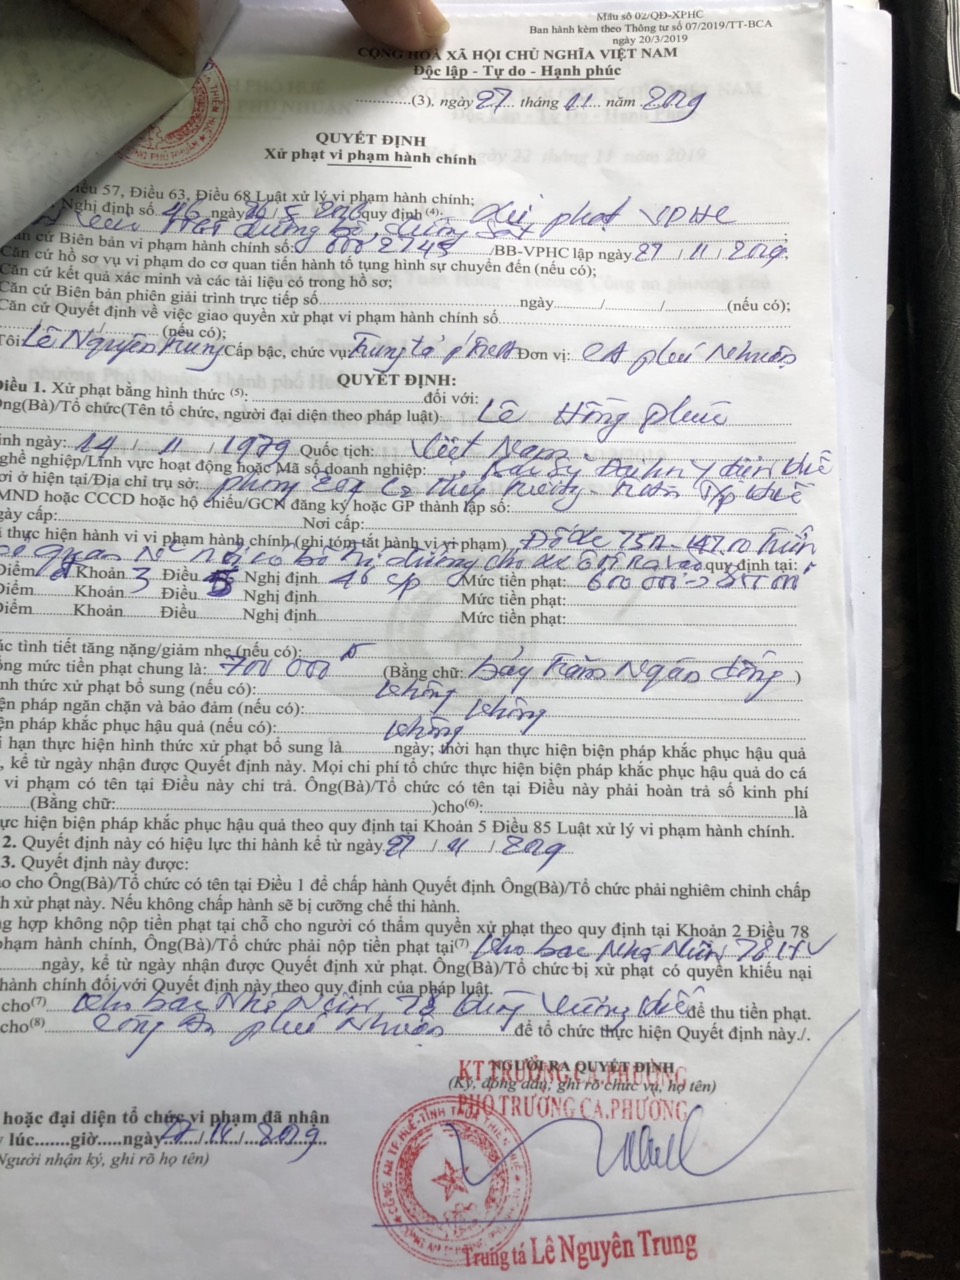 Mẫu số 02/QĐ-XPHC
Ban hành kèm theo Thông tư số 07/2019/TT-BCA
ngày 20/3/2019
CỘNG HOÀ XÃ HỘI CHỦ NGHĨA VIỆT NAM
Độc lập - Tự do - Hạnh phúc
(3), ngày 27 tháng 11 năm 2019
QUYẾT ĐỊNH
Xử phạt vi phạm hành chính
57, Điều 63, Điều 68 Luật xử lý vi phạm hành chính;
Nghị định số 46 ngày 26/5/2016 quy định (4): Xử phạt VPHC
đường bộ, đường sắt ;
cứ Biên bản vi phạm hành chính số: 0002745 /BB-VPHC lập ngày 27/11/2019
Căn cứ hồ sơ vụ vi phạm do cơ quan tiến hành tố tụng hình sự chuyển đến (nếu có);
Căn cứ kết quả xác minh và các tài liệu có trong hồ sơ;
Căn cứ Biên bản phiên giải trình trực tiếp số ngày / / (nếu có);
Căn cứ Quyết định về việc giao quyền xử phạt vi phạm hành chính số
/ / (nếu có);
Tôi Lê Nguyên Trung Cấp bậc, chức vụ: Trung tá Đơn vị: CA phú Nhuận
QUYẾT ĐỊNH:
Điều 1. Xử phạt bằng hình thức (5): đối với:
Ông(Bà)/Tổ chức(Tên tổ chức, người đại diện theo pháp luật): Lê Hồng phúc
inh ngày: 14/11/1979 Quốc tịch: Việt Nam
ghề nghiệp/Lĩnh vực hoạt động hoặc Mã số doanh nghiệp:
ơi ở hiện tại/Địa chỉ trụ sở: phòng
MND hoặc CCCD hoặc hộ chiếu/GCN đăng ký hoặc GP thành lập số:
gày cấp: Nơi cấp:
thực hiện hành vi vi phạm hành chính (ghi tóm tắt hành vi vi phạm) Để xe 75A-147.00 trước
cơ quan NN nơi có bố trí đường cho xe ô tô ra vào quy định tại:
Điểm Khoản 3 Điều 5 Nghị định 46 CP Mức tiền phạt: 600 000 -> 800 000
Điểm Khoản Điều Nghị định Mức tiền phạt:
Điểm Khoản Điều Nghị định Mức tiền phạt:
ác tình tiết tăng nặng/giảm nhẹ (nếu có):
ổng mức tiền phạt chung là: 700 000 đ (Bằng chữ: bảy Trăm Ngàn đồng )
nh thức xử phạt bổ sung (nếu có): không
ện pháp ngăn chặn và bảo đảm (nếu có): không
ện pháp khắc phục hậu quả (nếu có): không
i hạn thực hiện hình thức xử phạt bổ sung là ngày; thời hạn thực hiện biện pháp khắc phục hậu quả
, kể từ ngày nhận được Quyết định này. Mọi chi phí tổ chức thực hiện biện pháp khắc phục hậu quả do cá
vi phạm có tên tại Điều này chi trả. Ông(Bà)/Tổ chức có tên tại Điều này phải hoàn trả số kinh phí
(Bằng chữ: )cho(6): là
ực hiện biện pháp khắc phục hậu quả theo quy định tại Khoản 5 Điều 85 Luật xử lý vi phạm hành chính.
2. Quyết định này có hiệu lực thi hành kể từ ngày 27/11/2019
3. Quyết định này được:
ao cho Ông(Bà)/Tổ chức có tên tại Điều 1 để chấp hành Quyết định Ông(Bà)/Tổ chức phải nghiêm chỉnh chấp
h xử phạt này. Nếu không chấp hành sẽ bị cưỡng chế thi hành.
ng hợp không nộp tiền phạt tại chỗ cho người có thẩm quyền xử phạt theo quy định tại Khoản 2 Điều 78
phạm hành chính, Ông(Bà)/Tổ chức phải nộp tiền phạt tại(7) kho bạc Nhà Nước 78 HV
ngày, kể từ ngày nhận được Quyết định xử phạt. Ông(Bà)/Tổ chức bị xử phạt có quyền khiếu nại
hành chính đối với Quyết định này theo quy định của pháp luật.
cho(7) kho bạc Nhà Nước 78 Hùng Vương Huế để thu tiền phạt.
cho(8) Công An phú Nhuận để tổ chức thực hiện Quyết định này./.
NGƯỜI RA QUYẾT ĐỊNH
(Ký, đóng dấu, ghi rõ chức vụ, họ tên)
KT TRƯỞNG CA.PHƯỜNG
PHÓ TRƯỞNG CA.PHƯỜNG
hoặc đại diện tổ chức vi phạm đã nhận
lúc giờ ngày 27/11/2019
Người nhận ký, ghi rõ họ tên)
Trung tá Lê Nguyên Trung